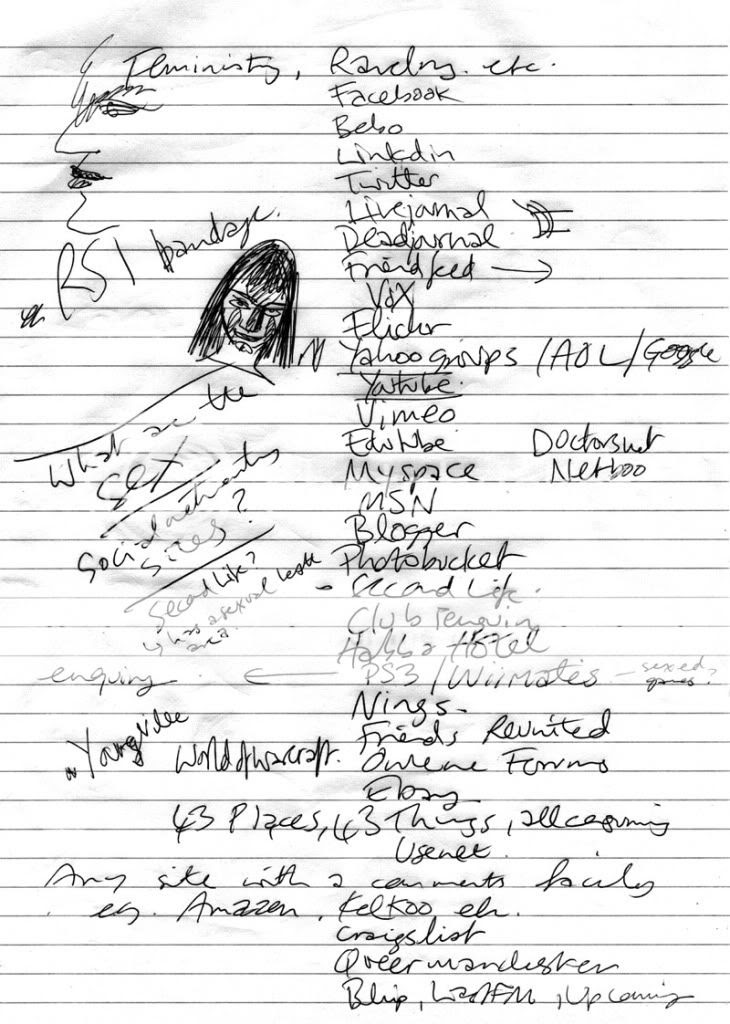 Feministing, Ravelry. etc.
Facebook
Bebo
Linkdin
Twitter
Livejournal
Deadjournal
RSI bandage.
Friendfeed
Vox
Flickr
Yahoo groups / AOL / Google
Youtube.
What are the
Vimeo
Edutube Doctorsnet
sex Myspace Netboo
MSN
Social networking Blogger
sites?
Photobucket
Second Life? - Second Life.
↳ has a sexual health
area?
Club Penguin
Habbo Hotel
enquiry ← PS3 / Wiimates - sex ed
games?
Nings-
Friends Reunited
Youngville World of warcraft. Online Forums
Ebay
43 Places, 43 Things, allconsuming
Usenet.
Any site with a comments facility
eg. Amazon, Kelkoo etc.
Craigslist
Queermanchester
Blip, LastFM, Upcoming